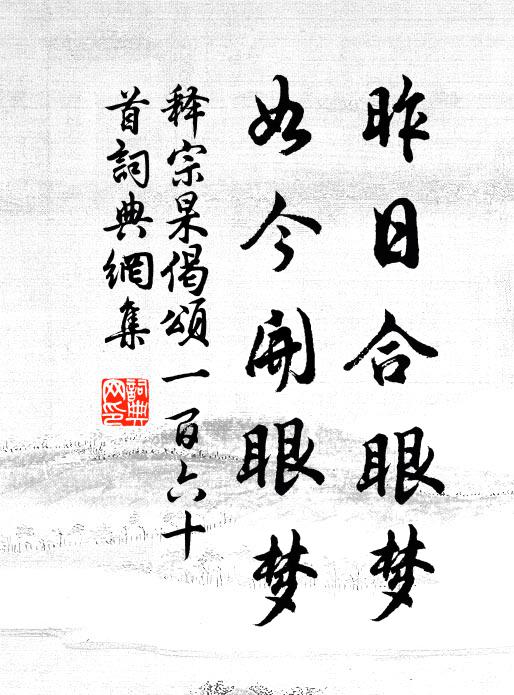 昨日合眼梦
如今开眼梦
释宗杲偈颂一百六十
首詞典網集
詞典
网印